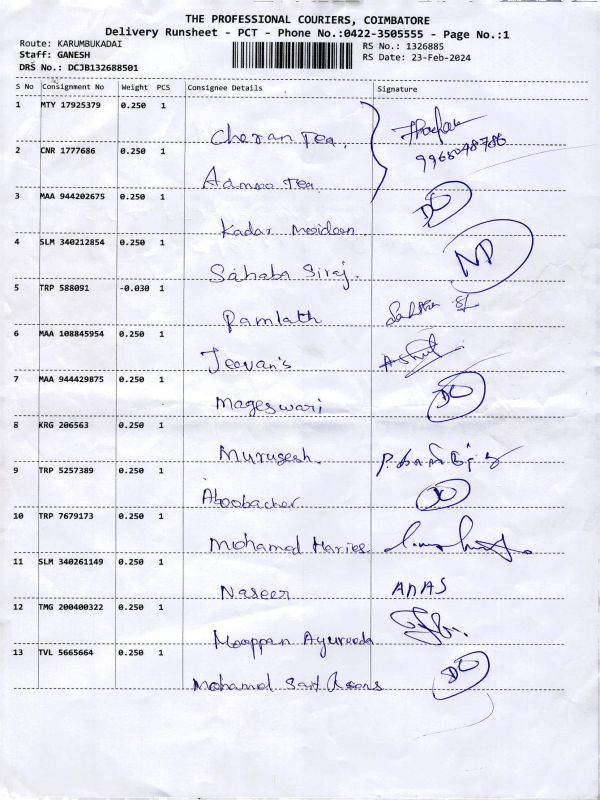 THE PROFESSIONAL COURIERS, COIMBATORE
Delivery Runsheet - PCT - Phone No.:0422-3505555 - Page No.:1
Route: KARUMBUKADAI RS No.: 1326885
Staff: GANESH RS Date: 23-Feb-2024
DRS No.: DCJB132688501
S No Consignment No Weight PCS Consignee Details Signature
1 MTY 17925379 0.250 1
Cheran Tea.
2 CNR 1777686 0.250 1
Tea
3 MAA 944202675 0.250 1
Kadar Moideen
4 SLM 340212854 0.250 1
Sahaba Siraj.
5 TRP 588091 -0.030 1
Ramlath
6 MAA 108845954 0.250 1
Jeevan's
7 MAA 944429875 0.250 1
Mageswari
8 KRG 206563 0.250 1
Murugesh.
9 TRP 5257389 0.250 1
Aboobacher
10 TRP 7679173 0.250 1
Mohamed Haries
11 SLM 340261149 0.250 1
Naseer ANAS
12 TMG 200400322 0.250 1
Moappan Ayurveda
13 TVL 5665664 0.250 1
Mohamed